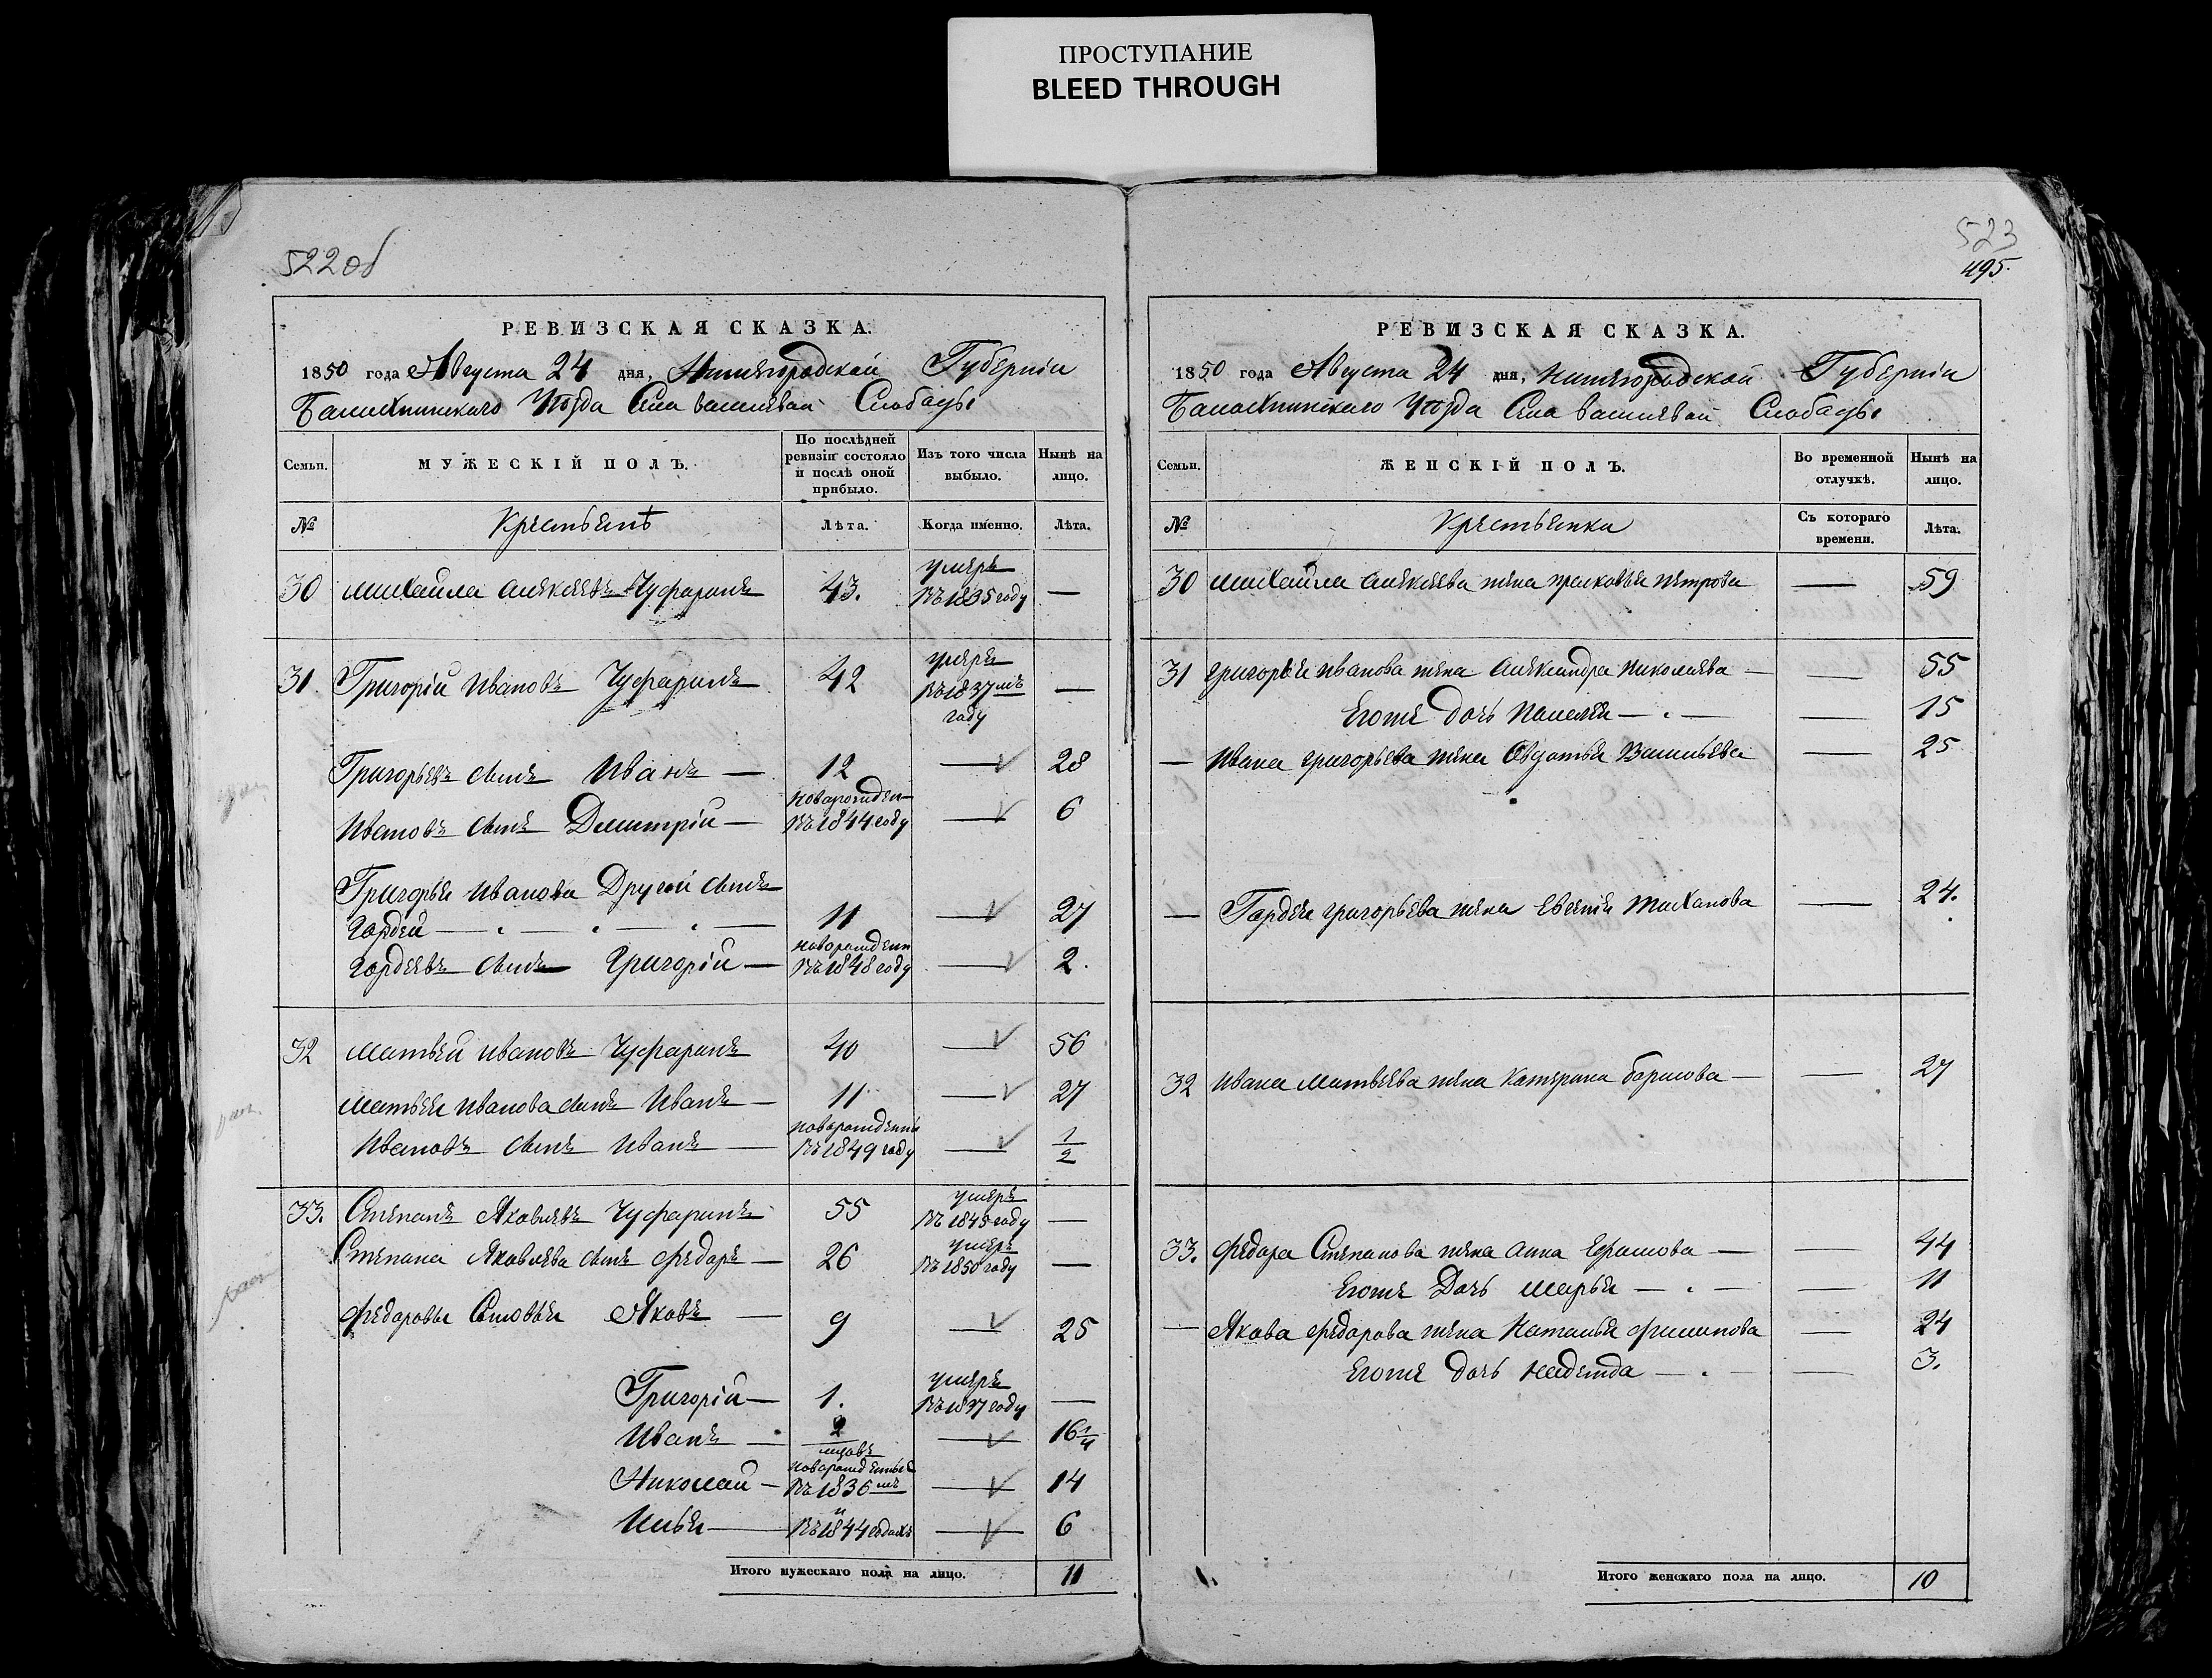 ПРОСТУПАНИЕ
BLEED THROUGH
522об
РЕВИЗСКАЯ СКАЗКА.
1850 года Августа 24 дня, Нижегородской Губернiи
Балахнинскаго Уѣзда Села василевай Слобады
Семьи.
МУЖЕСКІЙ ПОЛЪ.
По послѣдней ревизіи состояло и послѣ оной прибыло.
Изъ того числа выбыло.
Нынѣ на лицо.
№ Крестьенѣ Лѣта. Когда именно. Лѣта.
30 михайла алексеевъ Чуфаринъ 43. умеръ въ 1835 году —
31. Григорiй ивановъ Чуфаринъ 42 умеръ въ 1837мъ году —
Григорьевъ сынъ Иванъ — 12 — 28
Ивановъ сынъ Дмитрiй — новарожден въ 1844 году — 6
Григорья иванова Другой сынъ
Гордей — 11 — 27
Гордеевъ сынъ Григорiй — новорожден въ 1848 году — 2.
32 матвей ивановъ Чуфаринъ 40 — 56
матвея иванова сынъ Иванъ — 11 — 27
Ивановъ сынъ иванъ — новорожденый въ 1849 году — 1/2
33. Степанъ Яковлевъ Чуфаринъ 55 умеръ въ 1845 году —
Степана Яковлева сынъ федаръ — 26 умеръ въ 1850 году —
федаровы Сыновья Яковъ — 9 — 25
Григорiй — 1. умеръ въ 1837 году —
Иванъ — 2/месовъ — 16 1/4
Николай — новорожденые въ 1836мъ — 14
Илья — и въ 1844 годахъ — 6
Итого мужескаго пола на лицо. 11
523
495.
РЕВИЗСКАЯ СКАЗКА.
1850 года Августа 24 дня, нижегородской Губернiи
Балахнинскаго Уѣзда Села василевай Слобады
Семьи.
ЖЕНСКІЙ ПОЛЪ.
Во временной отлучкѣ.
Нынѣ на лицо.
№ Крестьенки Съ котораго времени. Лѣта.
30 михайла алексеева жена прасковья петрова — 59
31 григорья иванова жена александра николаева — — 55
Егоже дочь пелагея — . — — 15
— Ивана григорьева жена Овдотья Васильева — 25
— Гардея григорьева жена Евгенiя Тиханова — 24.
32 ивана матвеева жена катерина барисова — — 27
33. федара Степанова жена анна Ефимова — — 44
Егоже Дочь марья — . — — 11
— Якова федарова жена Наталья филипова — 24
Егоже дочь надежда — . — — 3.
Итого женскаго пола на лицо. 10